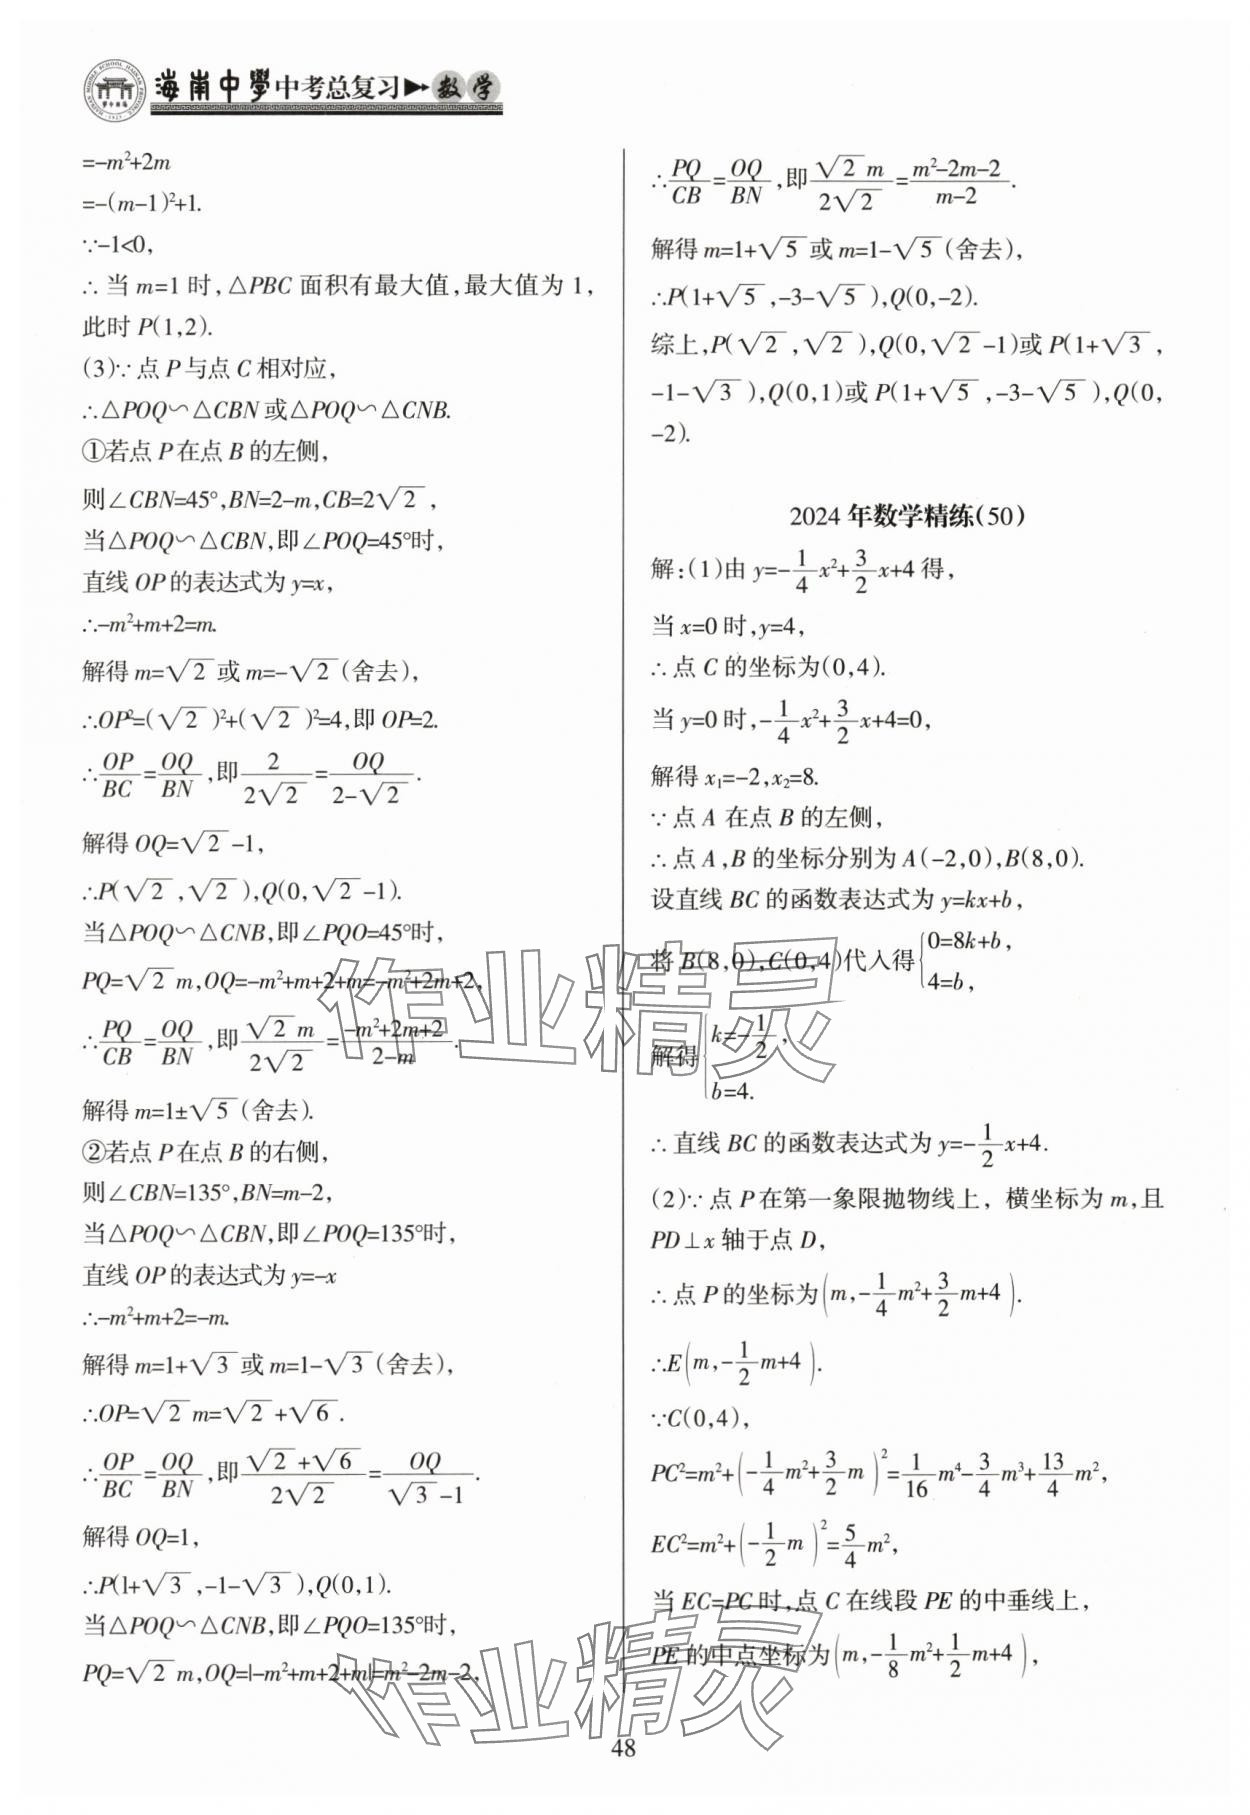 海南中學中考总复习 数学
=-m²+2m
=-(m-1)²+1.
∵-1<0,
∴当 m=1 时,△PBC 面积有最大值,最大值为 1,
此时 P(1,2).
(3)∵点 P 与点 C 相对应,
∴△POQ∽△CBN 或△POQ∽△CNB.
①若点 P 在点 B 的左侧,
则∠CBN=45°,BN=2-m,CB=2√2,
当△POQ∽△CBN,即∠POQ=45°时,
直线 OP 的表达式为 y=x,
∴-m²+m+2=m.
解得 m=√2 或 m=-√2(舍去),
∴OP²=(√2)²+(√2)²=4,即 OP=2.
∴OP/BC=OQ/BN,即 2/(2√2)=OQ/(2-√2).
解得 OQ=√2-1,
∴P(√2,√2),Q(0,√2-1).
当△POQ∽△CNB,即∠PQO=45°时,
PQ=√2m,OQ=-m²+m+2+m=-m²+2m+2,
∴PQ/CB=OQ/BN,即 √2m/(2√2)=(-m²+2m+2)/(2-m).
解得 m=1±√5(舍去).
②若点 P 在点 B 的右侧,
则∠CBN=135°,BN=m-2,
当△POQ∽△CBN,即∠POQ=135°时,
直线 OP 的表达式为 y=-x
∴-m²+m+2=-m.
解得 m=1+√3 或 m=1-√3(舍去),
∴OP=√2m=√2+√6.
∴OP/BC=OQ/BN,即 (√2+√6)/(2√2)=OQ/(√3-1).
解得 OQ=1,
∴P(1+√3,-1-√3),Q(0,1).
当△POQ∽△CNB,即∠PQO=135°时,
PQ=√2m,OQ=|-m²+m+2+m|=m²-2m-2,
∴PQ/CB=OQ/BN,即 √2m/(2√2)=(m²-2m-2)/(m-2).
解得 m=1+√5或 m=1-√5(舍去),
∴P(1+√5,-3-√5),Q(0,-2).
综上,P(√2,√2),Q(0,√2-1)或 P(1+√3,
-1-√3),Q(0,1)或 P(1+√5,-3-√5),Q(0,
-2).
2024 年数学精练(50)
解:(1)由 y=-1/4x²+3/2x+4 得,
当 x=0 时,y=4,
∴点 C 的坐标为(0,4).
当 y=0 时,-1/4x²+3/2x+4=0,
解得 x₁=-2,x₂=8.
∵点 A 在点 B 的左侧,
∴点 A,B 的坐标分别为 A(-2,0),B(8,0).
设直线 BC 的函数表达式为 y=kx+b,
将 B(8,0),C(0,4)代入得{0=8k+b,
4=b,
解得{k=-1/2,
b=4.
∴直线 BC 的函数表达式为 y=-1/2x+4.
(2)∵点 P 在第一象限抛物线上,横坐标为 m,且
PD⊥x 轴于点 D,
∴点 P 的坐标为(m,-1/4m²+3/2m+4).
∴E(m,-1/2m+4).
∵C(0,4),
PC²=m²+(-1/4m²+3/2m)²=1/16m⁴-3/4m³+13/4m²,
EC²=m²+(-1/2m)²=5/4m²,
当 EC=PC 时,点 C 在线段 PE 的中垂线上,
PE 的中点坐标为(m,-1/8m²+1/2m+4),
作业精灵
作业精灵
48